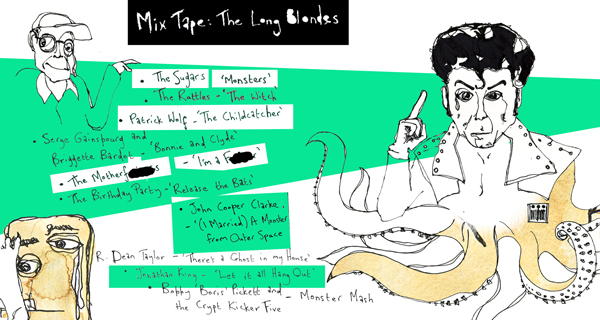 Mix Tape: The Long Blondes
• The Sugars 'Monsters'
• The Rattles - 'The Witch'
• Patrick Wolf - 'The Childcatcher'
• Serge Gainsbourg and
Briggette Bardot - 'Bonnie and Clyde'
• The Mother s - 'I'm a F r'
• The Birthday Party - 'Release the Bats'
• John Cooper Clarke.
- '(I Married) A Monster
from Outer Space
R. Dean Taylor - 'There's a Ghost in my House'
• Jonathan King - 'Let it all Hang Out'
• Bobby 'Boris' Pickett and
the Crypt Kicker Five - Monster Mash